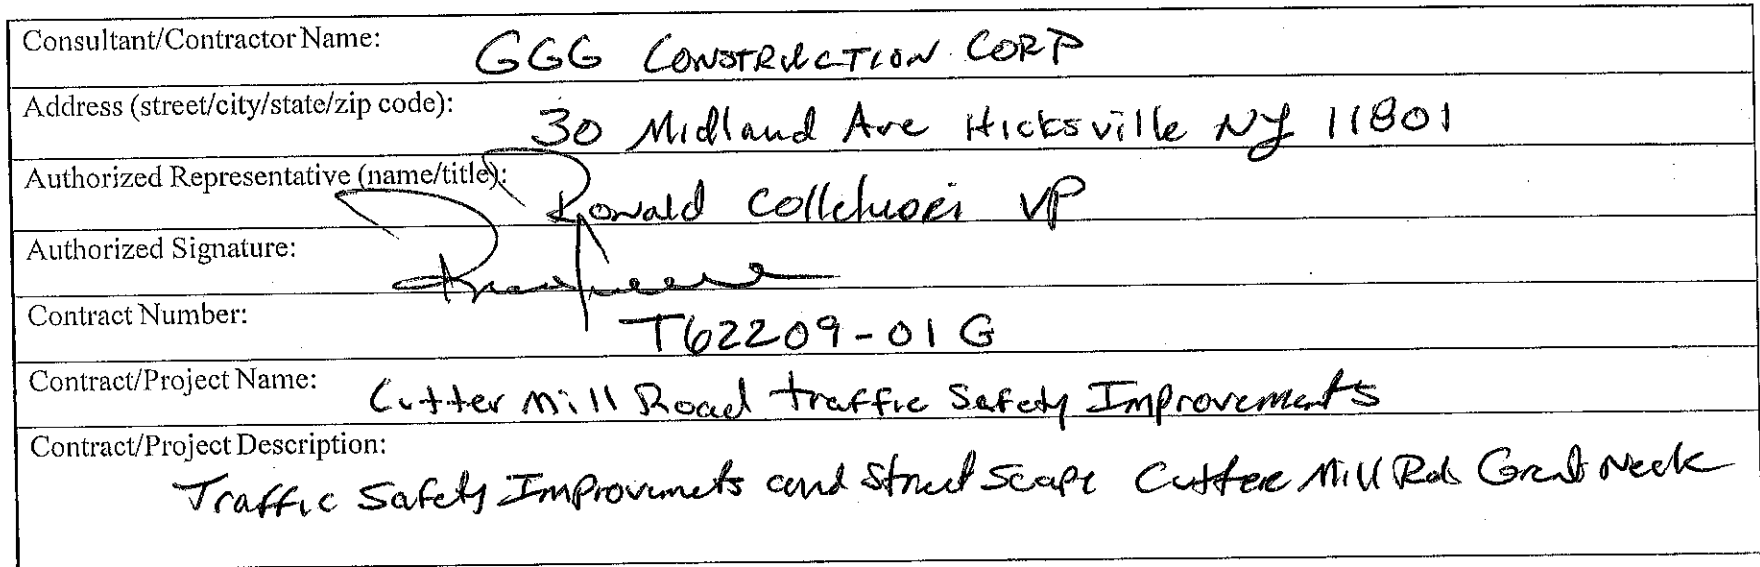 Consultant/Contractor Name: GGG CONSTRUCTION CORP
Address (street/city/state/zip code): 30 Midland Ave Hicksville NY 11801
Authorized Representative (name/title): Ronald VP
Authorized Signature:
Contract Number: T62209-01 G
Contract/Project Name: Cutter Mill Road traffic Safety Improvements
Contract/Project Description:
Traffic Safety Improvmets and Street Scape Cutter Mill Rd Great Neck